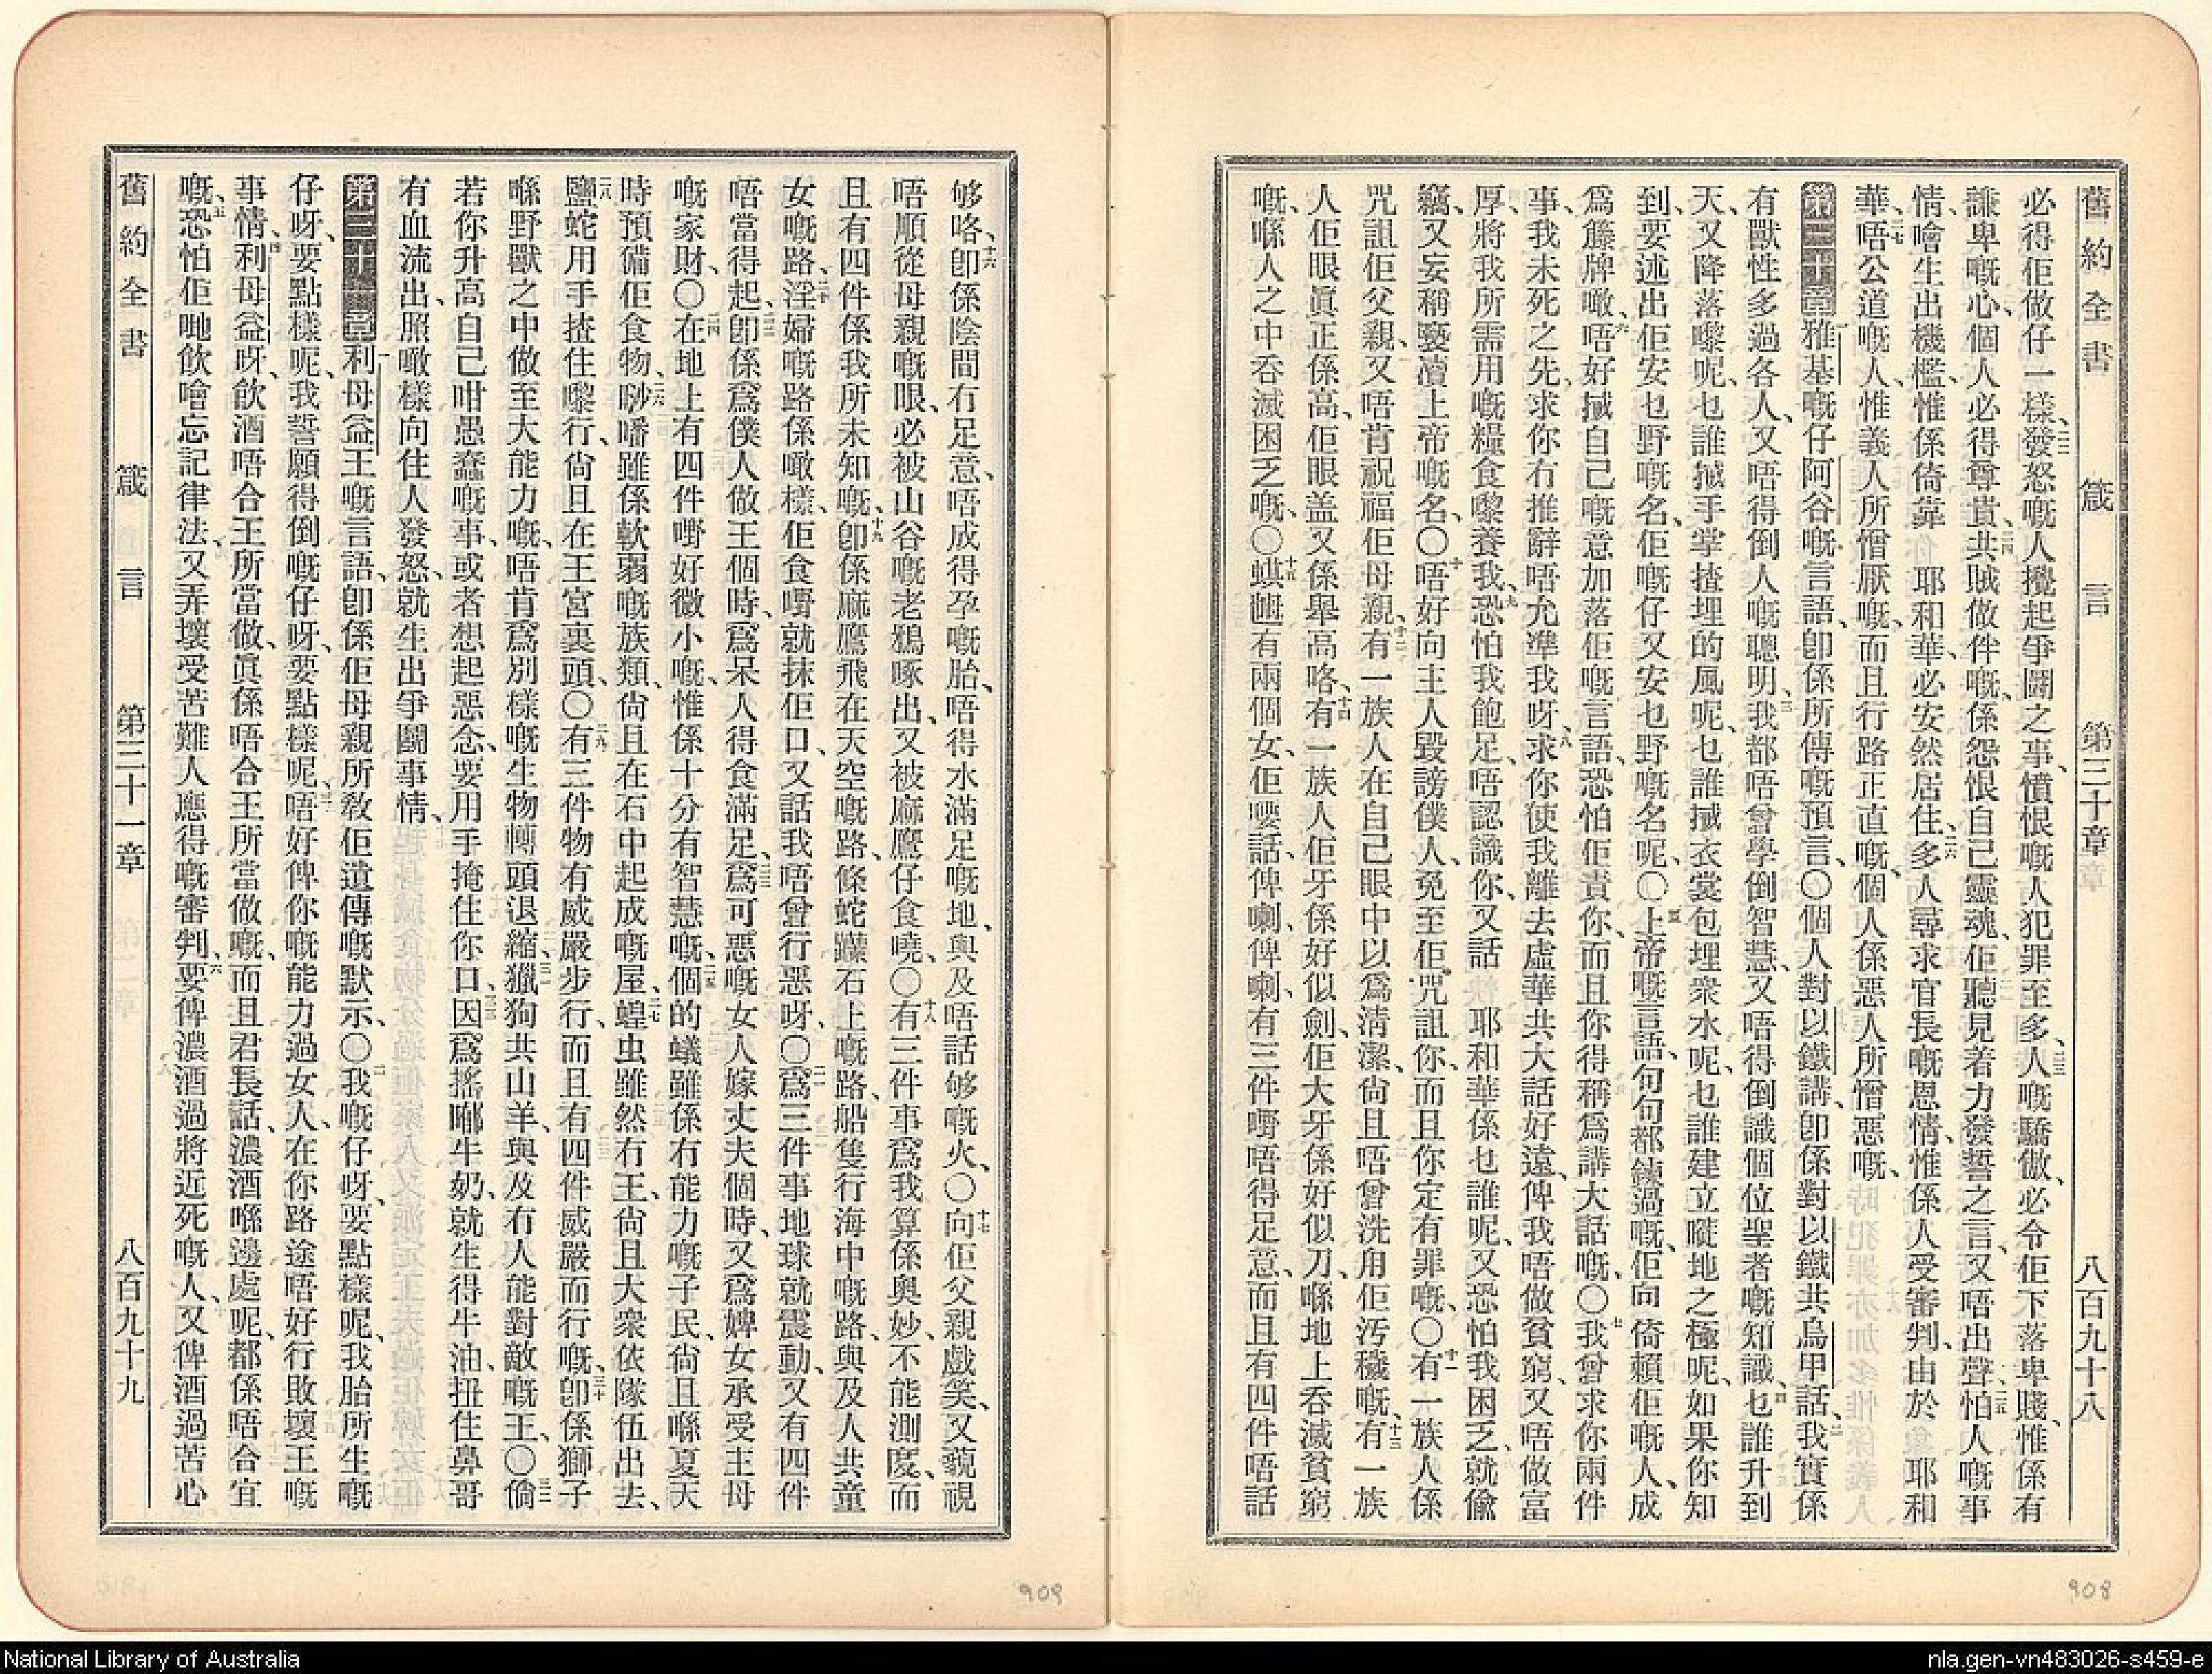 舊約全書　箴言　第三十章　八百九十八
必得佢做仔一樣、發怒嘅人攪起爭鬭之事、憤恨嘅人犯罪至多、人嘅驕傲、必令佢下落卑賤、惟係有
謙卑嘅心個人必得尊貴、共賊做伴嘅、係怨恨自己靈魂、佢聽見着力發誓之言、又唔出聲、怕人嘅事
情、噲生出機檻、惟係倚靠　耶和華、必安然居住、多人尋求官長嘅恩情、惟係人受審判、由於　耶和
華、唔公道嘅人、惟義人所憎厭嘅、而且行路正直嘅、個人係惡人所憎惡嘅、
第三十章雅基嘅仔阿谷嘅言語、卽係所傳嘅預言、〇個人對以鐵講、卽係對以鐵共烏甲話、我實係
有獸性多過各人、又唔得倒人嘅聰明、我都唔曾學倒智慧、又唔得倒識個位聖者嘅知識、乜誰升到
天、又降落嚟呢、乜誰搣手掌揸埋的風呢、乜誰搣衣裳包埋衆水呢、乜誰建立嘥地之極呢、如果你知
到、要述出佢安乜野嘅名、佢嘅仔又安乜野嘅名呢、〇上帝嘅言語、句句都鍊過嘅、佢向倚賴佢嘅人、成
爲籐牌噉、唔好搣自己嘅意加落佢嘅言語、恐怕佢責你、而且你得稱爲講大話嘅、〇我曾求你兩件
事、我未死之先、求你冇推辭唔允準我呀、求你使我離去虛華共大話好遠、俾我唔做貧窮、又唔做富
厚、將我所需用嘅糧食嚟養我、恐怕我飽足、唔認識你、又話　耶和華係乜誰呢、又恐怕我困乏、就偸
竊、又妄稱褻瀆上帝嘅名、〇唔好向主人毀謗僕人、免至佢咒詛你、而且你定有罪嘅、〇有一族人係
咒詛佢父親、又唔肯祝福佢母親、有一族人在自己眼中以爲淸潔、尙且唔曾洗甪佢汚穢嘅、有一族
人佢眼眞正係高、佢眼盖又係舉高咯、有一族人佢牙係好似劍、佢大牙係好似刀、喺地上吞滅貧窮
嘅、喺人之中吞滅困乏嘅、〇蜞𧊅有兩個女、佢嘐話、俾喇、俾喇、有三件嘢唔得足意、而且有四件唔話
舊約全書　箴言　第三十一章　八百九十九
够咯、卽係陰間冇足意、唔成得孕嘅胎、唔得水滿足嘅地、與及唔話够嘅火、〇向佢父親戲笑、又藐視
唔順從母親嘅眼、必被山谷嘅老鴉啄出、又被麻鷹仔食嘵、〇有三件事爲我算係奧妙、不能測度、而
且有四件係我所未知嘅、卽係麻鷹飛在天空嘅路、條蛇躝石上嘅路、船隻行海中嘅路、與及人共童
女嘅路、淫婦嘅路係噉樣、佢食嘢就抹佢口、又話我唔曾行惡呀、〇爲三件事地球就震動、又有四件
唔當得起、卽係爲僕人做王個時、爲呆人得食滿足、爲可惡嘅女人嫁丈夫個時、又爲婢女承受主母
嘅家財、〇在地上有四件嘢好微小嘅、惟係十分有智慧嘅、個的蟻雖係冇能力嘅子民、尙且喺夏天
時預備佢食物、𠲖噃雖係軟弱嘅族類、尙且在石中起成嘅屋、蝗虫雖然冇王、尙且大衆依隊伍出去、
鹽蛇用手揸住嚟行、尙且在王宮裏頭、〇有三件物有威嚴步行、而且有四件威嚴而行嘅、卽係獅子
喺野獸之中做至大能力嘅、唔肯爲別樣嘅生物轉頭退縮、獵狗共山羊、與及冇人能對敵嘅王、〇倘
若你升高自己咁愚蠢嘅事、或者想起惡念、要用手掩住你口、因爲搖嘟牛奶、就生得牛油、扭住鼻哥
有血流出、照噉樣向住人發怒、就生出爭鬭事情、
第三十一章利母益王嘅言語、卽係佢母親所敎佢遺傳嘅默示、〇我嘅仔呀、要點樣呢、我胎所生嘅
仔呀、要點樣呢、我誓願得倒嘅仔呀、要點樣呢、唔好俾你嘅能力過女人、在你路途唔好行敗壞王嘅
事情、利母益呀、飮酒唔合王所當做、眞係唔合王所當做嘅、而且君長話、濃酒喺邊處呢、都係唔合宜
嘅、恐怕佢哋飮噲忘記律法、又弄壞受苦難人應得嘅審判、要俾濃酒過將近死嘅人、又俾酒過苦心
909
908
National Library of Australia
nla.gen-vn483026-s459-e